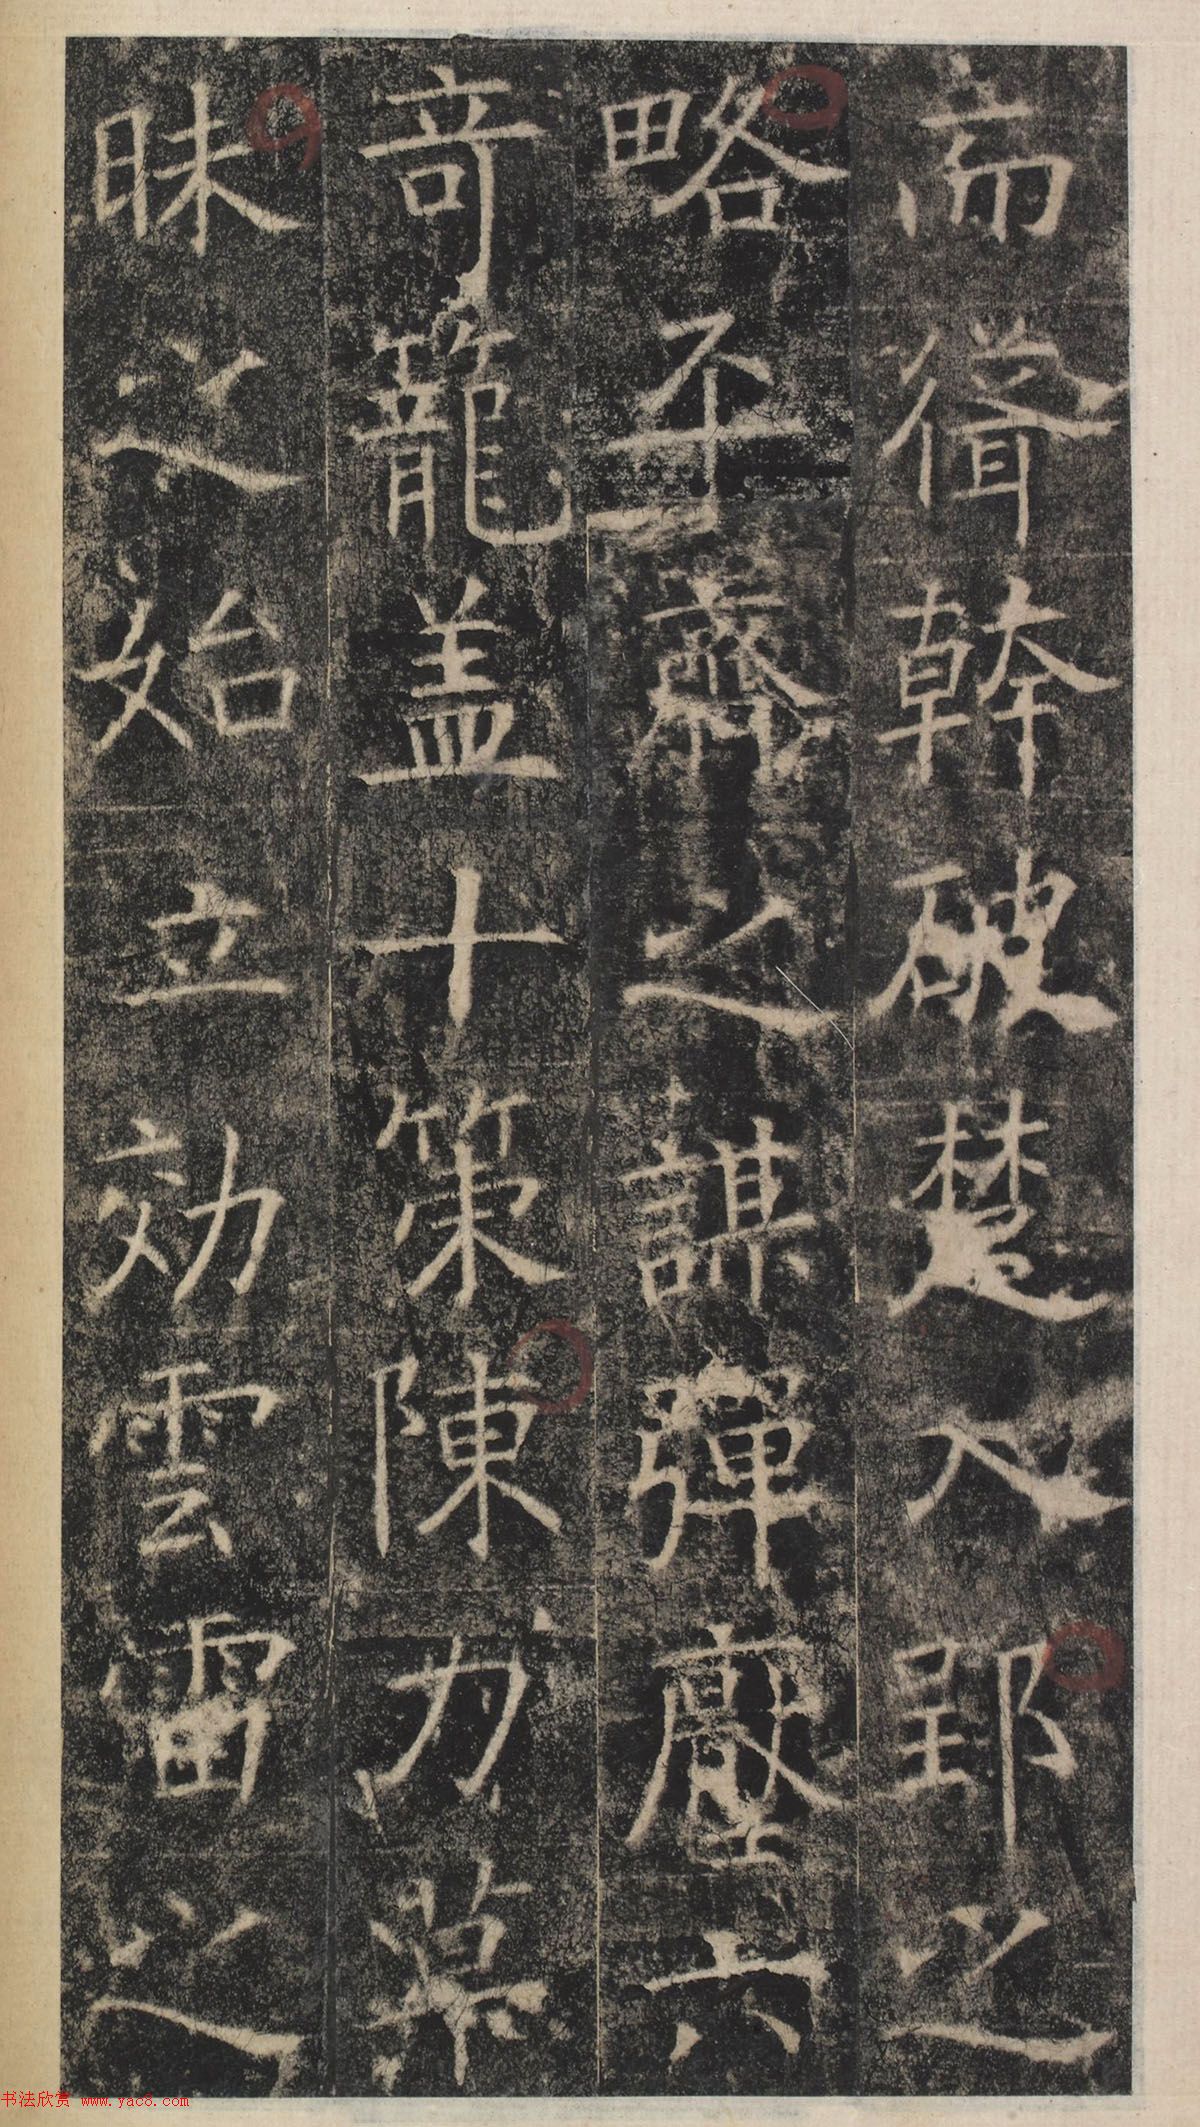 而聳幹破楚入郢之
略平齊之謀彈壓六
奇籠盖十策陳力草
昧之始立効雲雷之
书法欣赏 www.yac8.com